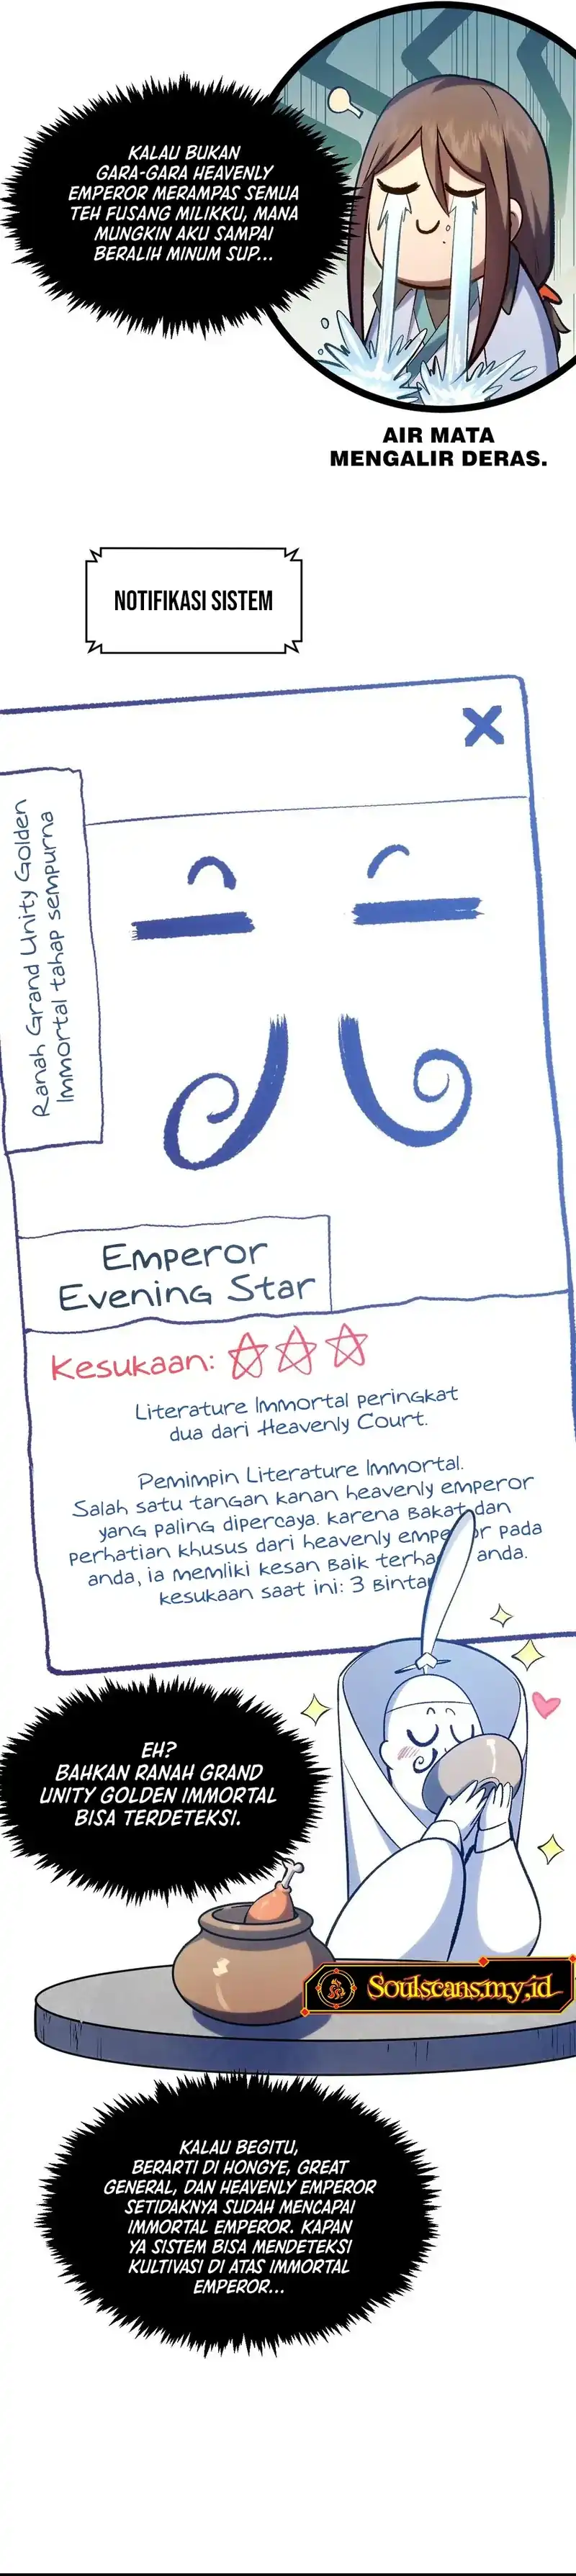 KALAU BUKAN
GARA-GARA HEAVENLY
EMPEROR MERAMPAS SEMUA
TEH FUSANG MILIKKU, MANA
MUNGKIN AKU SAMPAI
BERALIH MINUM SUP...
AIR MATA
MENGALIR DERAS.
NOTIFIKASI SISTEM
Ranah Grand Unity Golden
Immortal tahap sempurna
Emperor
Evening Star
Kesukaan:
Literature Immortal peringkat
dua dari Heavenly Court.
Pemimpin Literature Immortal.
Salah satu tangan kanan heavenly emperor
yang paling dipercaya. karena bakat dan
perhatian khusus dari heavenly empe or pada
anda, ia memliki kesan baik terha anda.
kesukaan saat ini: 3 Binta
EH?
BAHKAN RANAH GRAND
UNITY GOLDEN IMMORTAL
BISA TERDETEKSI.
Soulscans.my.id
KALAU BEGITU,
BERARTI DI HONGYE, GREAT
GENERAL, DAN HEAVENLY EMPEROR
SETIDAKNYA SUDAH MENCAPAI
IMMORTAL EMPEROR. KAPAN
YA SISTEM BISA MENDETEKSI
KULTIVASI DI ATAS IMMORTAL
EMPEROR...